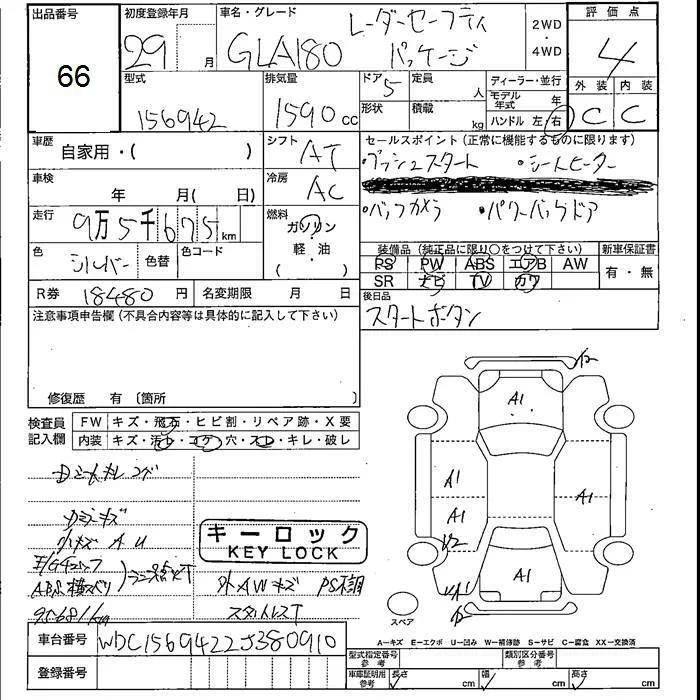 出品番号
66
初度登録年月
29 月
車名・グレード
GLA180 レーダーセーフティ
パッケージ
2WD
4WD
評価点
4
外装 内装
C C
型式
156942
排気量
1590 cc
ドア
5
形状
定員
人
積載
kg
ディーラー・並行
モデル年式 年
ハンドル 左/右
車歴
自家用・( )
シフト
AT
車検
年 月 ( 日)
冷房
AC
走行
9万5千675 km
燃料
ガソリン
軽・油
色
シルバー
色替
色コード
R券 18480 円
名変期限 月 日
セールスポイント (正常に機能するものに限ります)
・プッシュスタート ・シートヒーター
・バックカメラ ・パワーバックドア
装備品 (純正品に限り○をつけて下さい)
PS PW ABS エアB AW
SR ナビ TV カワ
新車保証書
有・無
後日品
スタートボタン
注意事項申告欄 (不具合内容等は具体的に記入して下さい)
修復歴 有 〔箇所
検査員記入欄
FW キズ・飛石・ヒビ割・リペア跡・X要
内装 キズ・汚れ・コゲ・穴・スレ・キレ・破レ
小キズ A U
ABS 横スベリ
95681km
キーロック
KEY LOCK
外AWキズ PS不調
スタッドレスT
A1
A1
A1
A1
A1
スペア
A−キズ E−エクボ U−凹み W−補修跡 S−サビ C−腐食 XX−交換済
車台番号 WDC1569422J380910
登録番号
型式指定番号 参考
類別区分番号 参考
車庫証明用 参考
長さ cm
幅 cm
高さ cm